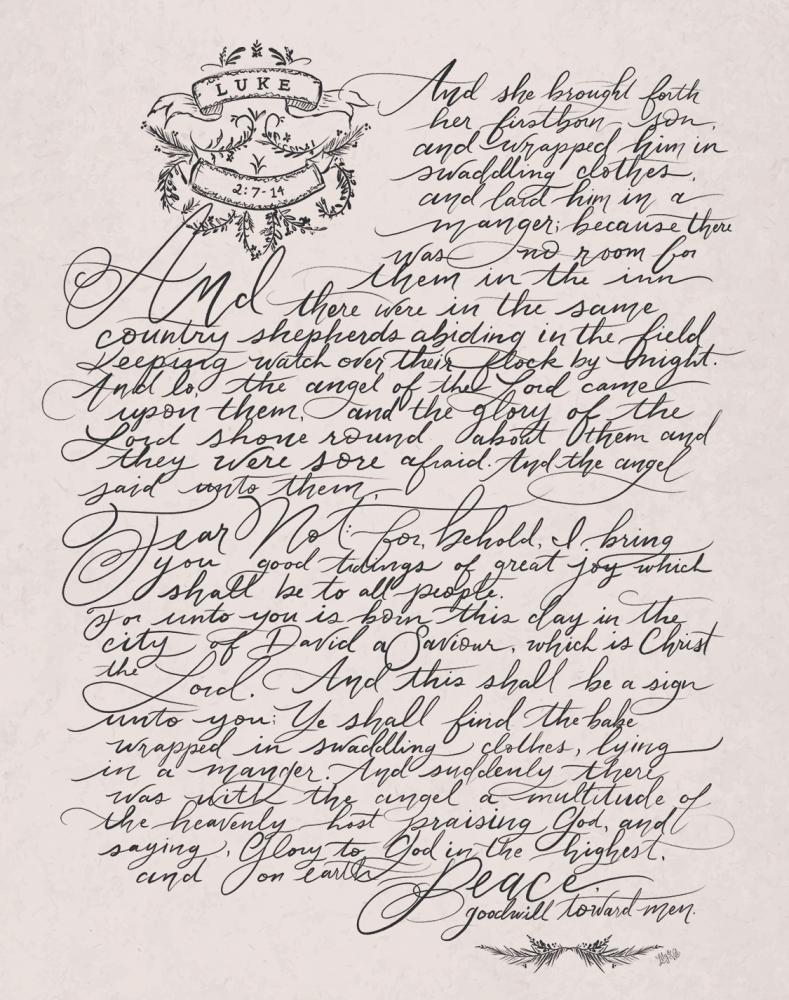 LUKE
2:7-14
And she brought forth
her firstborn son,
and wrapped him in
swaddling clothes,
and laid him in a
manger; because there
was no room for
them in the inn
And there were in the same
country shepherds abiding in the field
Keeping watch over their flock by night.
And lo, the angel of the Lord came
upon them, and the glory of the
Lord shone round about them and
they were sore afraid. And the angel
said unto them,
Fear Not: for, behold, I bring
you good tidings of great joy which
shall be to all people.
For unto you is born this day in the
city of David a Saviour, which is Christ
the Lord. And this shall be a sign
unto you: Ye shall find the babe
wrapped in swaddling clothes, lying
in a manger. And suddenly there
was with the angel a multitude of
the heavenly host praising God, and
saying, Glory to God in the highest,
and on earth Peace,
goodwill toward men.